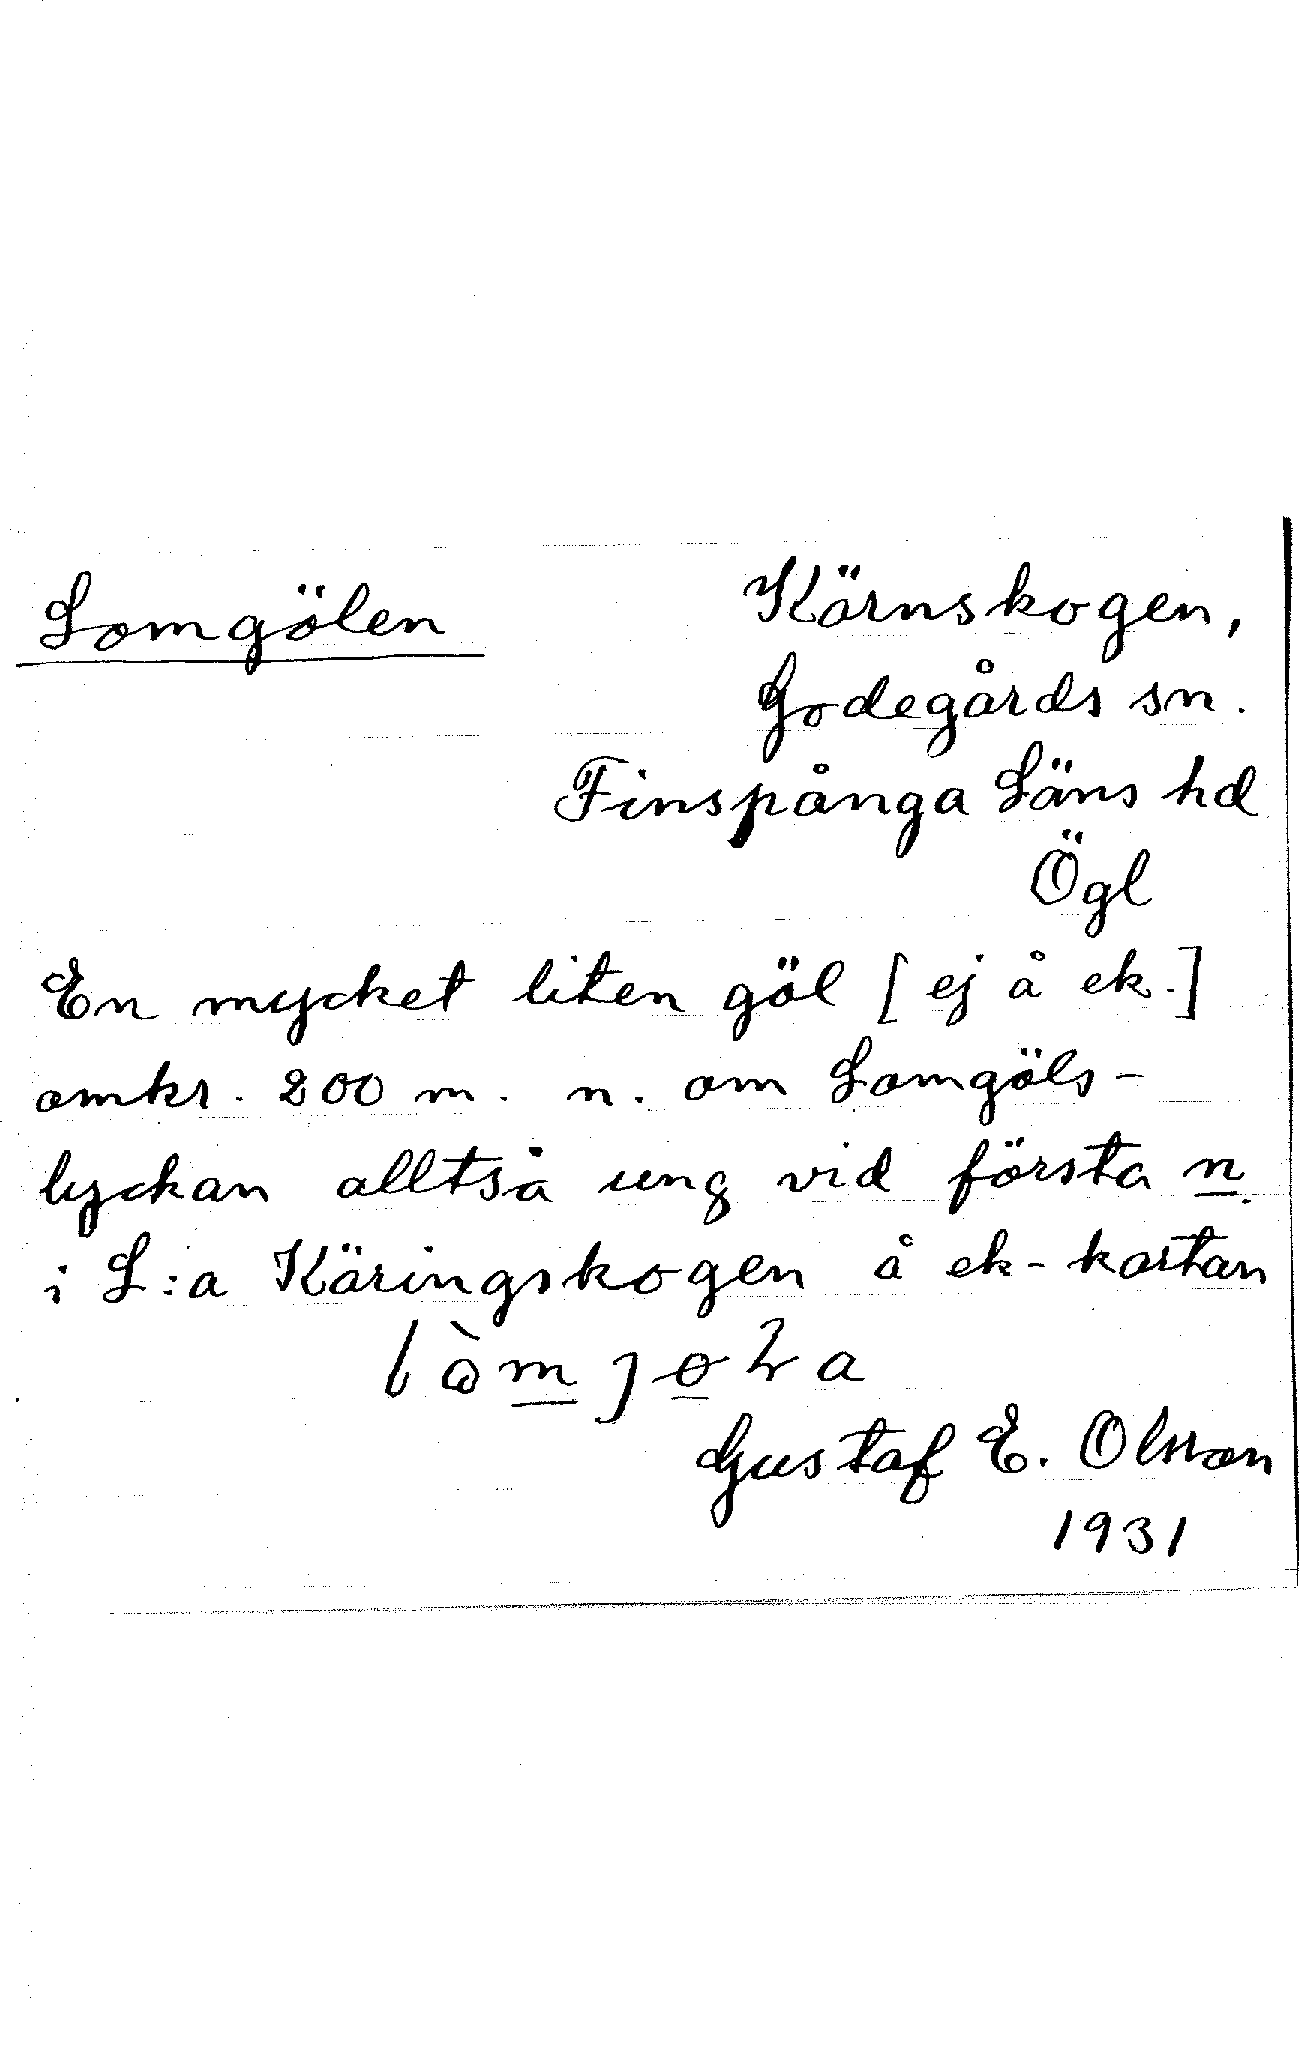 Lomgölen
Kärnskogen,
Godegårds sn.
Finspånga Läns hd
Ögl
En mycket liten göl [ej å ek.]
omkr. 200 m. n. om Lomgöls-
lyckan alltså ung vid första n.
i L:a Käringskogen å ek-kartan
Gustaf E. Olsson
1931